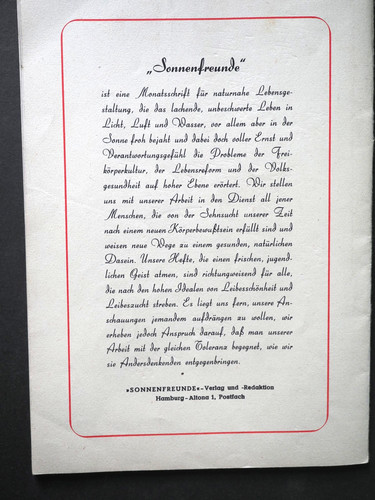 „Sonnenfreunde“
ist eine Monatsschrift für naturnahe Lebensge-
staltung, die das lachende, unbeschwerte Leben in
Licht, Luft und Wasser, vor allem aber in der
Sonne froh bejaht und dabei doch voller Ernst und
Verantwortungsgefühl die Probleme der Frei-
körperkultur, der Lebensreform und der Volks-
gesundheit auf hoher Ebene erörtert. Wir stellen
uns mit unserer Arbeit in den Dienst all jener
Menschen, die von der Sehnsucht unserer Zeit
nach einem neuen Körperbewußtsein erfüllt sind und
weisen neue Wege zu einem gesunden, natürlichen
Dasein. Unsere Hefte, die einen frischen, jugend-
lichen Geist atmen, sind richtungweisend für alle,
die nach den hohen Idealen von Leibesschönheit und
Leibeszucht streben. Es liegt uns fern, unsere An-
schauungen jemandem aufdrängen zu wollen, wir
erheben jedoch Anspruch darauf, daß man unserer
Arbeit mit der gleichen Toleranz begegnet, wie wir
sie Andersdenkenden entgegenbringen.
*
»SONNENFREUNDE«-Verlag und -Redaktion
Hamburg-Altona 1, Postfach